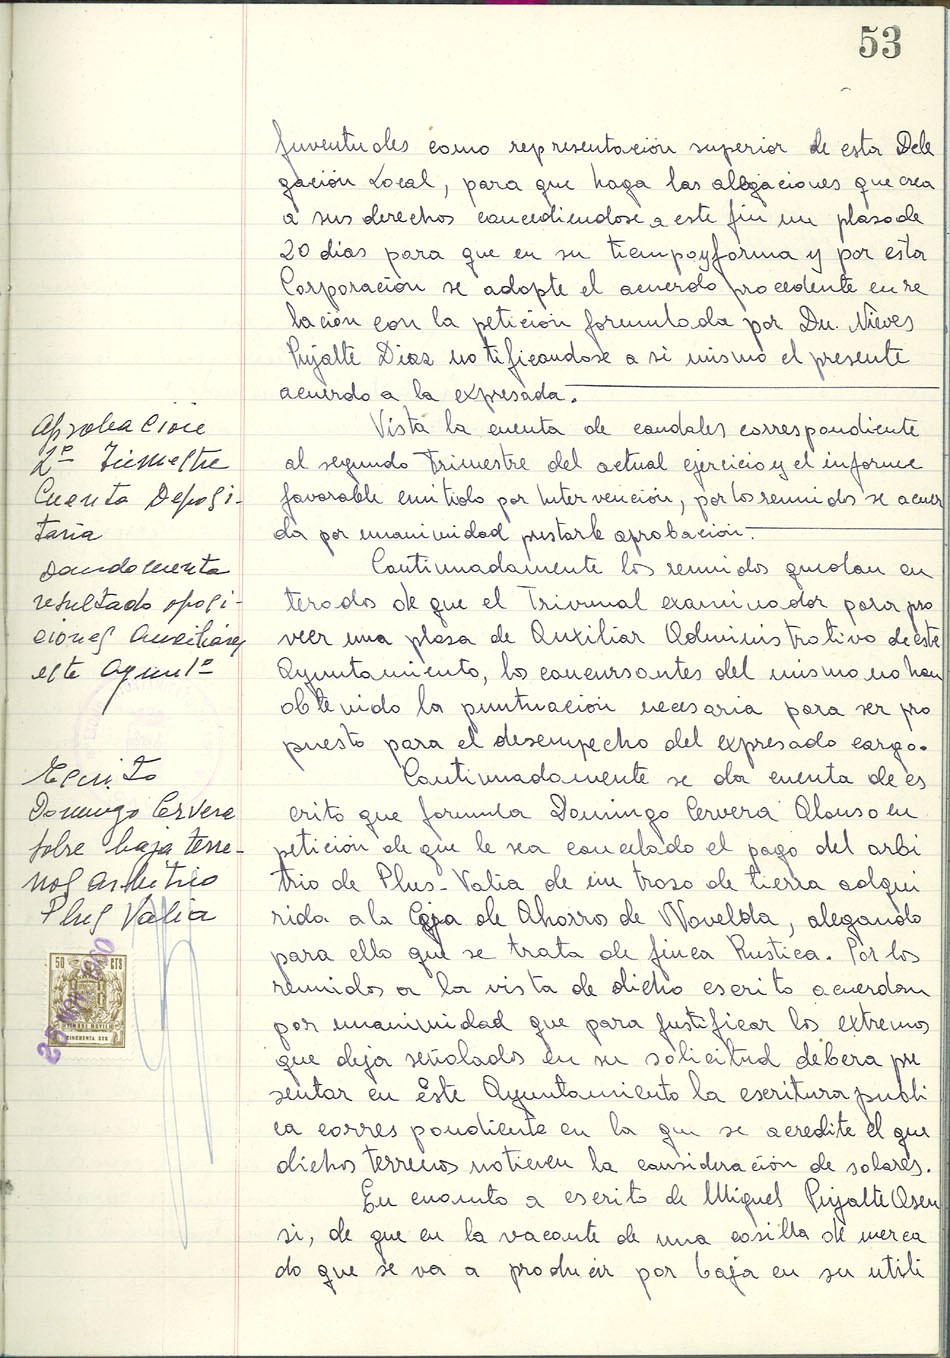 53
Juventudes como representación superior de esta Dele
gación Local, para que haga las alegaciones que crea
a sus derechos concediendose a este fin un plaso de
20 dias para que en su tiempo y forma y por esta
Corporación se adopte el acuerdo procedente en re
lación con la petición formulada por Dn. Nieves
Pujalte Diaz notificandose a si mismo el presente
acuerdo a la expresada.
Aprobación
2º Trimestre
Cuenta Deposi-
taria
Vista la cuenta de caudales correspondiente
al segundo Trimestre del actual ejercicio y el informe
favorable emitido por Intervención, por los reunidos se acuer
da por unanimidad prestarle aprobación.
Dando cuenta
resultado oposi-
ciones Auxiliares
este Ayuntº
Continuadamente los reunidos quedan en
terados de que el Trivunal examinador para pro
veer una plasa de Auxiliar Administrativo de este
Ayuntamiento, los concursantes del mismo no han
obtenido la puntuación necesaria para ser pro
puesto para el desempecho del expresado cargo.
Escrito
Domingo Cervera
sobre baja terre-
nos arbitrio
Plus Valia
Continuadamente se da cuenta de es
crito que formula Domingo Cervera Alonso en
petición de que le sea cancelado el pago del arbi
trio de Plus-Valia de un troso de tierra adqui
rida a la Caja de Ahorro de Novelda, alegando
para ello que se trata de finca Rustica. Por los
reunidos a la vista de dicho escrito acuerdan
por unanimidad que para justificar los extremos
que deja señalados en su solicitud debera pre
sentar en Este Ayuntamiento la escritura publi
ca correspondiente en la que se acredite el que
dichos terrenos no tienen la consideración de solares.
En cuanto a escrito de Miguel Pujalte Asen
si, de que en la vacante de una casilla de merca
do que se va a producir por baja en su utili
50 CTS
TIMBRE MOVIL
CINCUENTA CTS
NOV. 1960